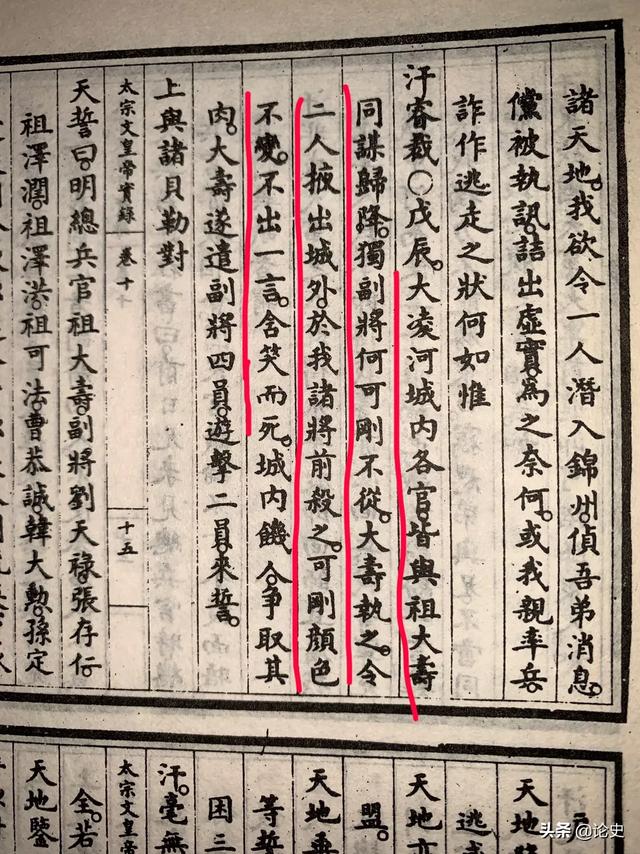 諸天地。我欲令一人潛入錦州。偵吾弟消息。
儻被執訊。詰出虛實。爲之奈何。或我親率兵。
詐作逃走之狀何如惟
汗睿裁〇戊辰。大凌河城內各官皆與祖大壽
同謀歸降。獨副將何可剛不從。大壽執之。令
二人掖出城外。於我諸將前殺之。可剛顏色
不變。不出一言。含笑而死。城內饑人。爭取其
肉。大壽遂遣副將四員。遊擊二員。來誓。
上與諸貝勒對
太宗文皇帝實錄 卷十 十五
天誓曰。明總兵官祖大壽。副將劉天祿。張存仁。
祖澤潤。祖澤洪。祖可法。曹恭誠。韓大勳。孫定
天地
逃
天地
盟。
天地
等誓
困三
汗。毫無
太宗文皇帝
全。若
天地鑒
头条 @论史